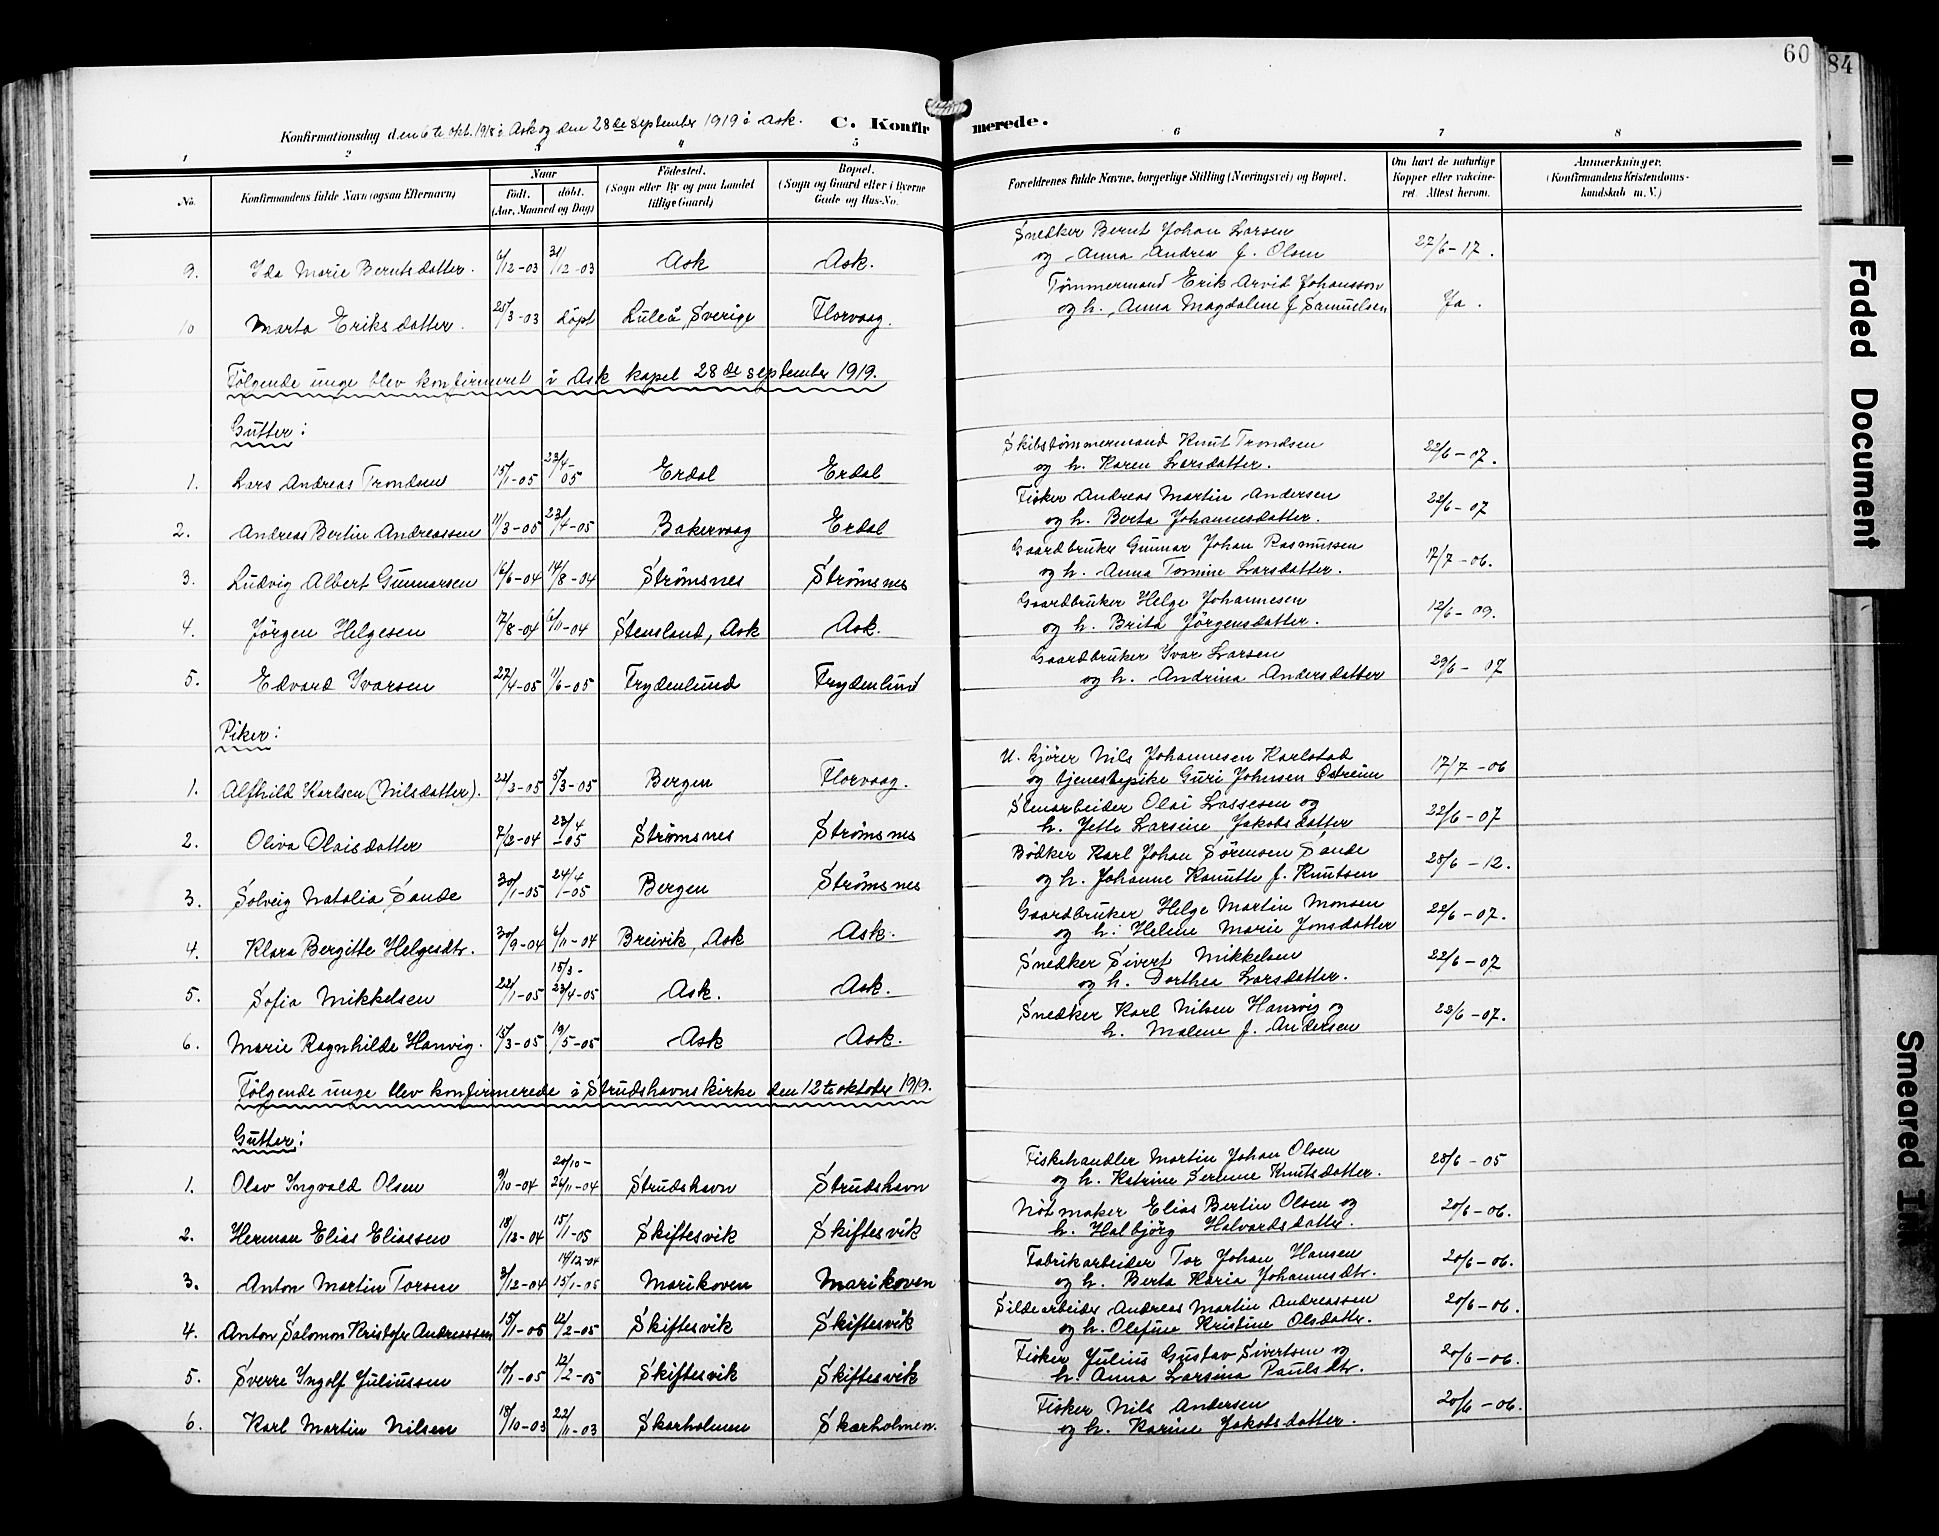 60
84
Konfirmationsdag den 6te okt. 1918 i Ask og den 28de september 1919 i Ask. C. Konfirmerede.
1 2 3 4 5 6 7 8
No. Konfirmandens fulde Navn (ogsaa Efternavn) Naar født. døbt. (Aar, Maaned og Dag) Fødested. (Sogn eller By og paa Landet tillige Gaard) Bopæl. (Sogn og Gaard eller i Byerne Gade og Hus-No. Forældrenes fulde Navne, borgerlige Stilling (Næringsvei) og Bopæl. Om havt de naturlige Kopper eller vakcineret. Attest herom. Anmerkninger. (Konfirmandens Kristendomskundskab m. V.)
Snedker Bernt Johan Larsen
9. Ida Marie Berntsdatter. 6/12-03 31/12-03 Ask Ask. og Anna Andrea f. Olsen 27/6-17.
Tømmermand Erik Arvid Johansson
10 Marta Eriksdatter. 25/3-03 døpt Luleå, Sverige Florvaag. og h. Anna Magdalene f. Samuelsen Ja.
Følgende unge blev konfirmeret i Ask kapel 28de september 1919.
Gutter:
Skibstømmermand Knut Trondsen
1. Lars Andreas Trondsen 15/1-05 23/4-05 Erdal Erdal og h. Karen Larsdatter. 22/6-07.
Fisker Andreas Martin Andersen
2. Andreas Bertin Andreassen 11/3-05 23/4-05 Bakervaag Erdal og h. Berta Johannesdatter. 22/6-07
Gaardbruker Gunnar Johan Rasmussen
3. Ludvig Albert Gunnarsen 16/6-04 14/8-04 Strømsnes Strømsnes og h. Anna Tomine Larsdatter. 17/7-06.
Gaardbruker Helge Johannesen
4. Jørgen Helgesen 17/8-04 6/11-04 Stensland, Ask Ask. og h. Brita Jørgensdatter. 12/6-09.
Gaardbruker Ivar Larsen
5. Edvard Ivarsen 27/4-05 11/6-05 Frydenlund Frydenlund og h. Andrina Andersdatter 29/6-07
Piker:
U. kjører Nils Johannesen Karlstad
1. Alfhild Karlsen (Nilsdatter). 22/2-05 5/3-05 Bergen Florvaag. og tjenestepike Guri Johnsen Østreim 17/7-06
Stenarbeider Olai Lassesen og
2. Oliva Olaisdatter 7/12-04 23/4-05 Strømsnes Strømsnes h. Jette Larsine Jakobsdatter 22/6-07
Bødker Karl Johan Sørensen Sande
3. Solveig Natalia Sande 30/1-05 24/4-05 Bergen Strømsnes og h. Johanne Kanutte f. Knutsen 28/6-12.
Gaardbruker Helge Martin Monsen
4. Klara Bergitte Helgesdtr. 30/9-04 6/11-04 Breivik, Ask Ask. og h. Helene Marie Jonsdatter 22/6-07.
Snedker Sivert Mikkelsen
5. Sofia Mikkelsen 22/1-05 15/3-23/4-05 Ask. Ask. og h. Dorthea Larsdatter. 22/6-07
Snedker Karl Nilsen Hanvig og
6. Marie Ragnhilde Hanvig. 15/3-05 19/5-05 Ask Ask. h. Malene f. Andersen 22/6-07.
Følgende unge blev konfirmerede i Strudshavns kirke den 12te oktober 1919.
Gutter:
Fiskehandler Martin Johan Olsen
1. Olav Ingvald Olsen 9/10-04 20/10-26/11-04 Strudshavn Strudshavn og h. Katrine Serene Knutsdatter. 28/6-05
Nøtmaker Elias Bertin Olsen og
2. Herman Elias Eliassen 18/12-04 15/1-05 Skiftesvik Skiftesvik h. Halbjørg Halvardsdatter. 20/6-06.
Fabrikarbeider Tor Johan Hansen
3. Anton Martin Torsen 3/12-04 14/12-04 15/1-05 Marikoven Marikoven og h. Berta Karia Johannesdtr. 20/6-06.
Sildearbeider Andreas Martin Andreassen
4. Anton Salomon Kristofer Andreassen 15/1-05 12/2-05 Skiftesvik Skiftesvik og h. Olefine Kristine Olsdatter. 20/6-06.
Fisker Julius Gustav Sivertsen og
5. Sverre Ingolf Juliussen 10/1-05 12/2-05 Skiftesvik Skiftesvik h. Anna Larsina Paulsdtr. 20/6-06.
Fisker Nils Andersen
6. Karl Martin Nilsen 18/10-03 22/11-03 Skarholmen Skarholmen. og h. Karine Jakobsdatter. 20/6-06.
Faded Document
Smeared Ink